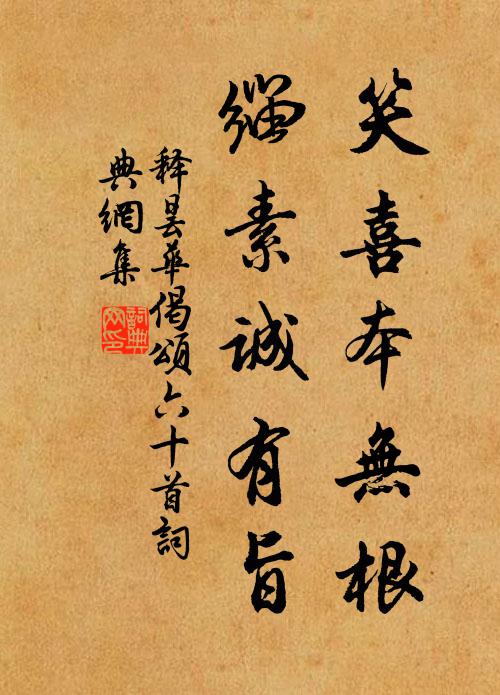 笑喜本無根
緇素誠有旨
释曇華偈頌六十首詞
典網集
詞典
网印